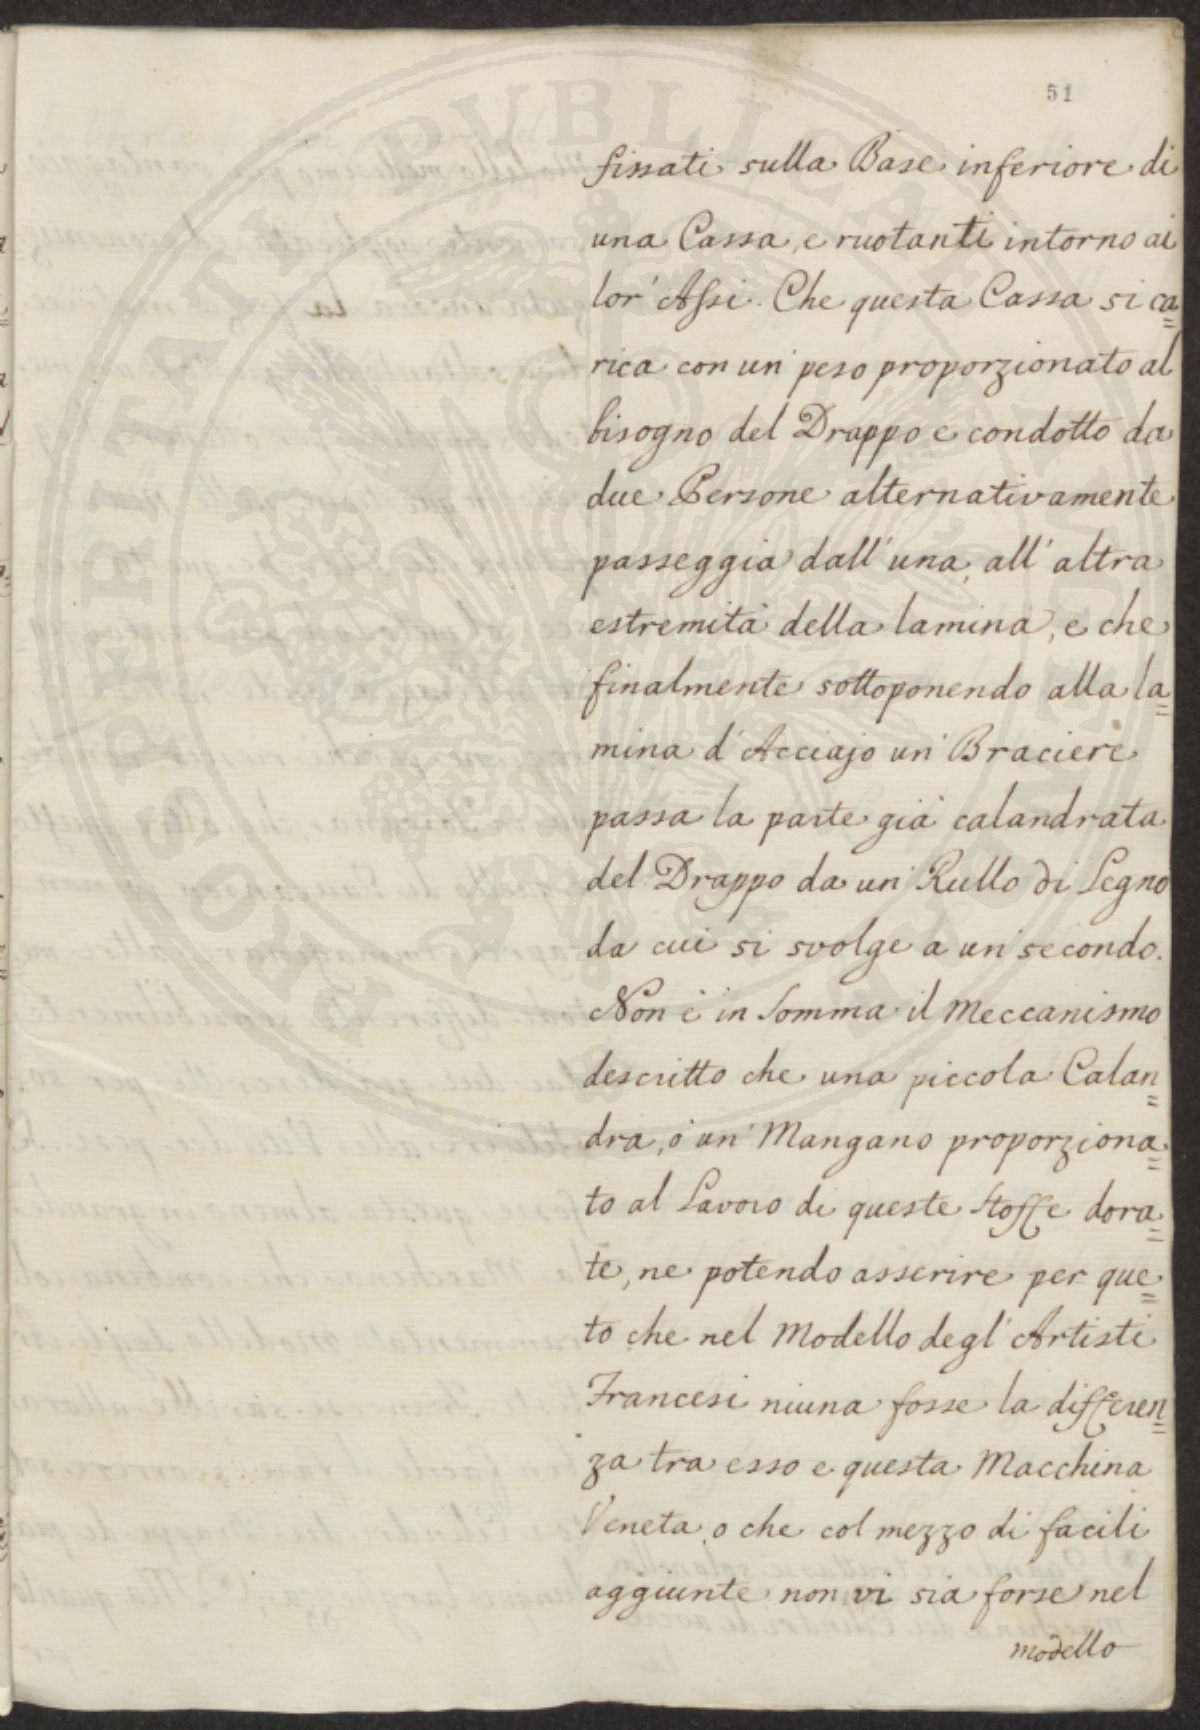 51
fissati sulla Base inferiore di
una Cassa, e ruotanti intorno ai
lor' Assi. Che questa Cassa si ca=
rica con un' peso proporzionato al
bisogno del Drappo e condotto da
due Persone alternativamente
passeggia dall' una, all' altra
estremità della lamina, e che
finalmente sottoponendo alla la=
mina d' Acciajo un' Braciere
passa la parte già calandrata
del Drappo da un' Rullo di Legno
da cui si svolge a un' secondo.
Non è in Somma il Meccanismo
descritto che una piccola Calan=
dra, ò un' Mangano proporziona=
to al Lavoro di queste Stoffe dora=
te, ne potendo asserire per que=
to che nel Modello degl' Artisti
Francesi niuna fosse la differen=
za tra esso e questa Macchina
Veneta, o che col mezzo di facili
aggiunte non vi sia forse nel
modello
PROSPERITATI PUBLICAE